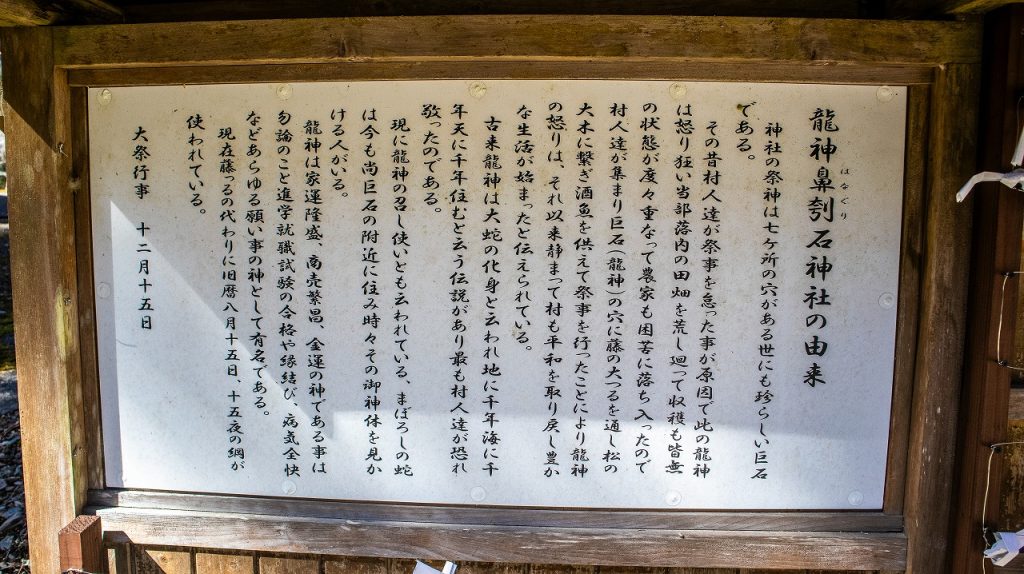 龍神鼻刳石神社の由来
はなぐり
神社の祭神は七ヶ所の穴がある世にも珍らしい巨石
である。
その昔村人達が祭事を怠った事が原因で此の龍神
は怒り狂い当部落内の田畑を荒し廻って収穫も皆無
の状態が度々重なって農家も困苦に落ち入ったので
村人達が集まり巨石(龍神)の穴に藤の大つるを通し松の
大木に繋ぎ酒魚を供えて祭事を行ったことにより龍神
の怒りは、それ以来静まって村も平和を取り戻し豊か
な生活が始まったと伝えられている。
古来龍神は大蛇の化身と云われ地に千年海に千
年天に千年住むと云う伝説があり最も村人達が恐れ
敬ったのである。
現に龍神の召し使いとも云われている、まぼろしの蛇
は今も尚巨石の附近に住み時々その御神体を見か
ける人がいる。
龍神は家運隆盛、商売繁昌、金運の神である事は
勿論のこと進学就職試験の合格や縁結び、病気全快
などあらゆる願い事の神として有名である。
現在藤つるの代わりに旧暦八月十五日、十五夜の綱が
使われている。
大祭行事 十二月十五日